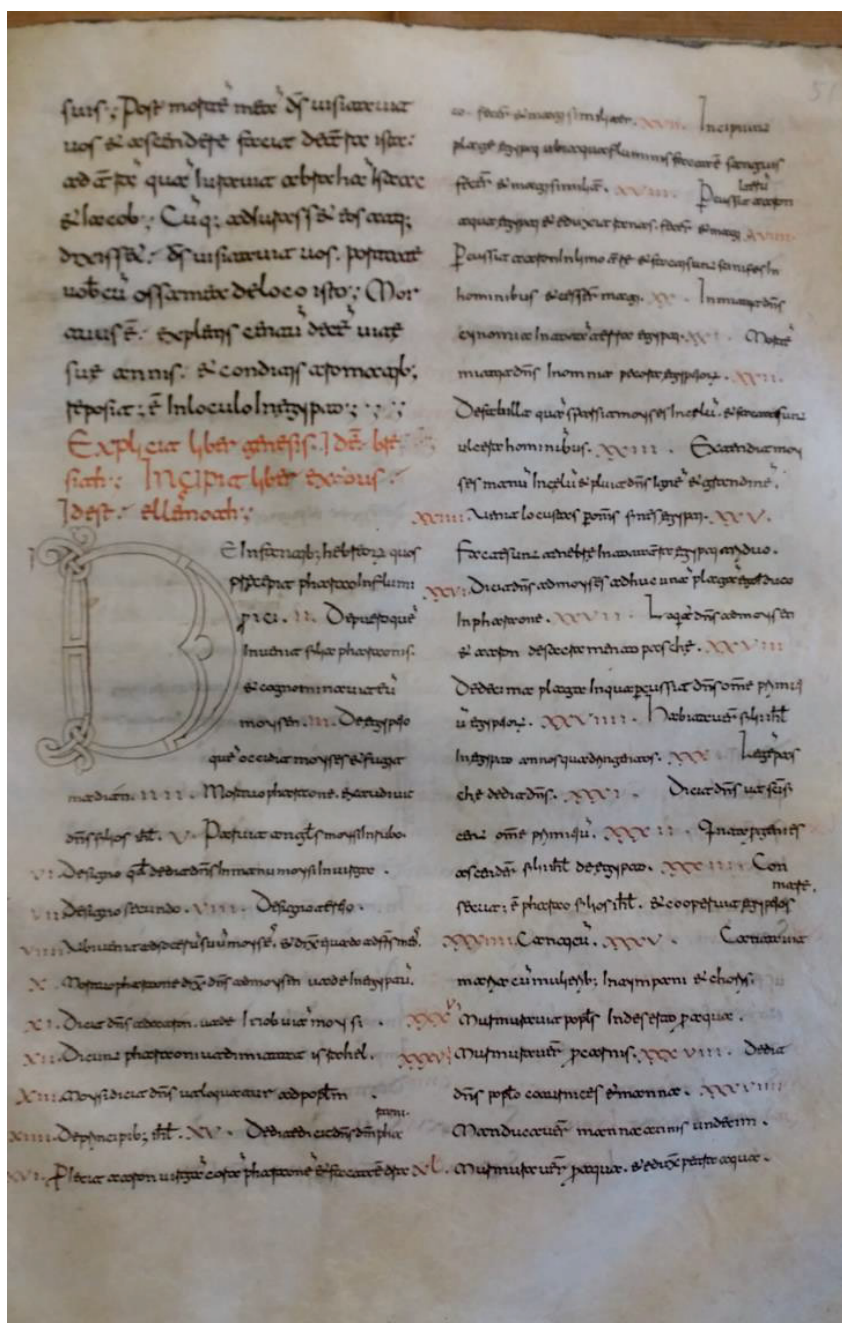 suis; Post mortē meā dš uisitauit
uos & ascendere faciet de tra ista.
ad trā quā Iurauit abrahā Isaac
& Iacob; Cūq; adiurass& eos atq;
dixiss&. dš uisitauit uos. portate
uobcū ossa mea de loco isto; Mor
tuus ē. expletis centū decē uite
sue annis. & conditus aromatib;
repositus; ē In loculo In egypto;
Explicit liber genesis. Idē bre
sith; Incipit liber exodus.
Idest. ellēmoth;
DE Infantib; hebreorū quos
precepit pharao In flumi
proici. II. De puero quē
Inuenit filia pharaonis.
& cognominauit eū
moysen. III. De egyptio
quē occidit moyses & fugit
madian. IIII. Mortuo pharaone. exaudiuit
dns filios isrl. V. Paruit angls moysi In rubo.
VI. De signo qd dedit dns In manu moysi In uirga.
VII. De signo secundo. VIII. De signo tertio.
VIIII. Ubi uenit ad
X. Mortuo pharaone dix dns ad moysen uade In egyptū.
XI. Dicit dns ad aaron. uade In obuiā moysi.
XII. Dicunt pharaoni ut dimittat israhel.
XIII. Moysi dicit dns ut loquatur ad poplm.
XIIII. De principib; isrl. XV. Dedit
XVI. Proiecit aaron uirgā corā pharaone & fac
co. fecer & magi similiter. XVII. Incipiunt
plage egypti ubi aqua fluminis sanguis
fecer & magi similit. XVIII. Percussit aaron
aqua egypti & eduxit ranas. fecer & magi XVIIII.
Percussit aaron In limo tre & facti sunt scinifes In
hominibus & magi. XX. Inmittit dns
cynomia In totā terrā egypti. XXI. Mortē
mittit dns In omnia pecora egyptiorū. XXII.
De fabilla quā sparsit moyses In celū. & facta sunt
ulcera hominibus. XXIII. Extendit moy
ses manū In celū & pluit dns ignē & grandinē.
XXIIII. Uenit locusta p oms fines egypti. XXV.
Facte sunt tenebre In tota tra egypti triduo.
XXVI. Dicit dns ad moysen adhuc unā plagā educo
In pharaone. XXVII. Loquit dns ad moysen
& aaron de sacramento pasche. XXVIII.
De decima plaga In qua percussit dns omē primiti
ū egyptiorū. XXVIIII. Habitauer filii isrl
In egypto annos quadringentos. XXX. Legē pas
che dedit dns. XXXI. Dicit dns ut scīfi
cent omē primitiuū. XXXII. In qta progenies
ascender filii isrl de egypto. XXXIII. Con
secut; ē pharao filios isrl. & cooperuit egyptios mare.
XXXIIII. Canticū. XXXV. Cantauit
maria cū mulierib; In tympani & choris.
XXXVI Murmurauit popls In deserto p aqua.
XXXVII Murmurauer p carnis. XXXVIII. Dedit
dns poplo coturnices & manna. XXXVIIII
Manducauer manna annis
XL. Murmurauer p aqua. & eduxit petra aqua.